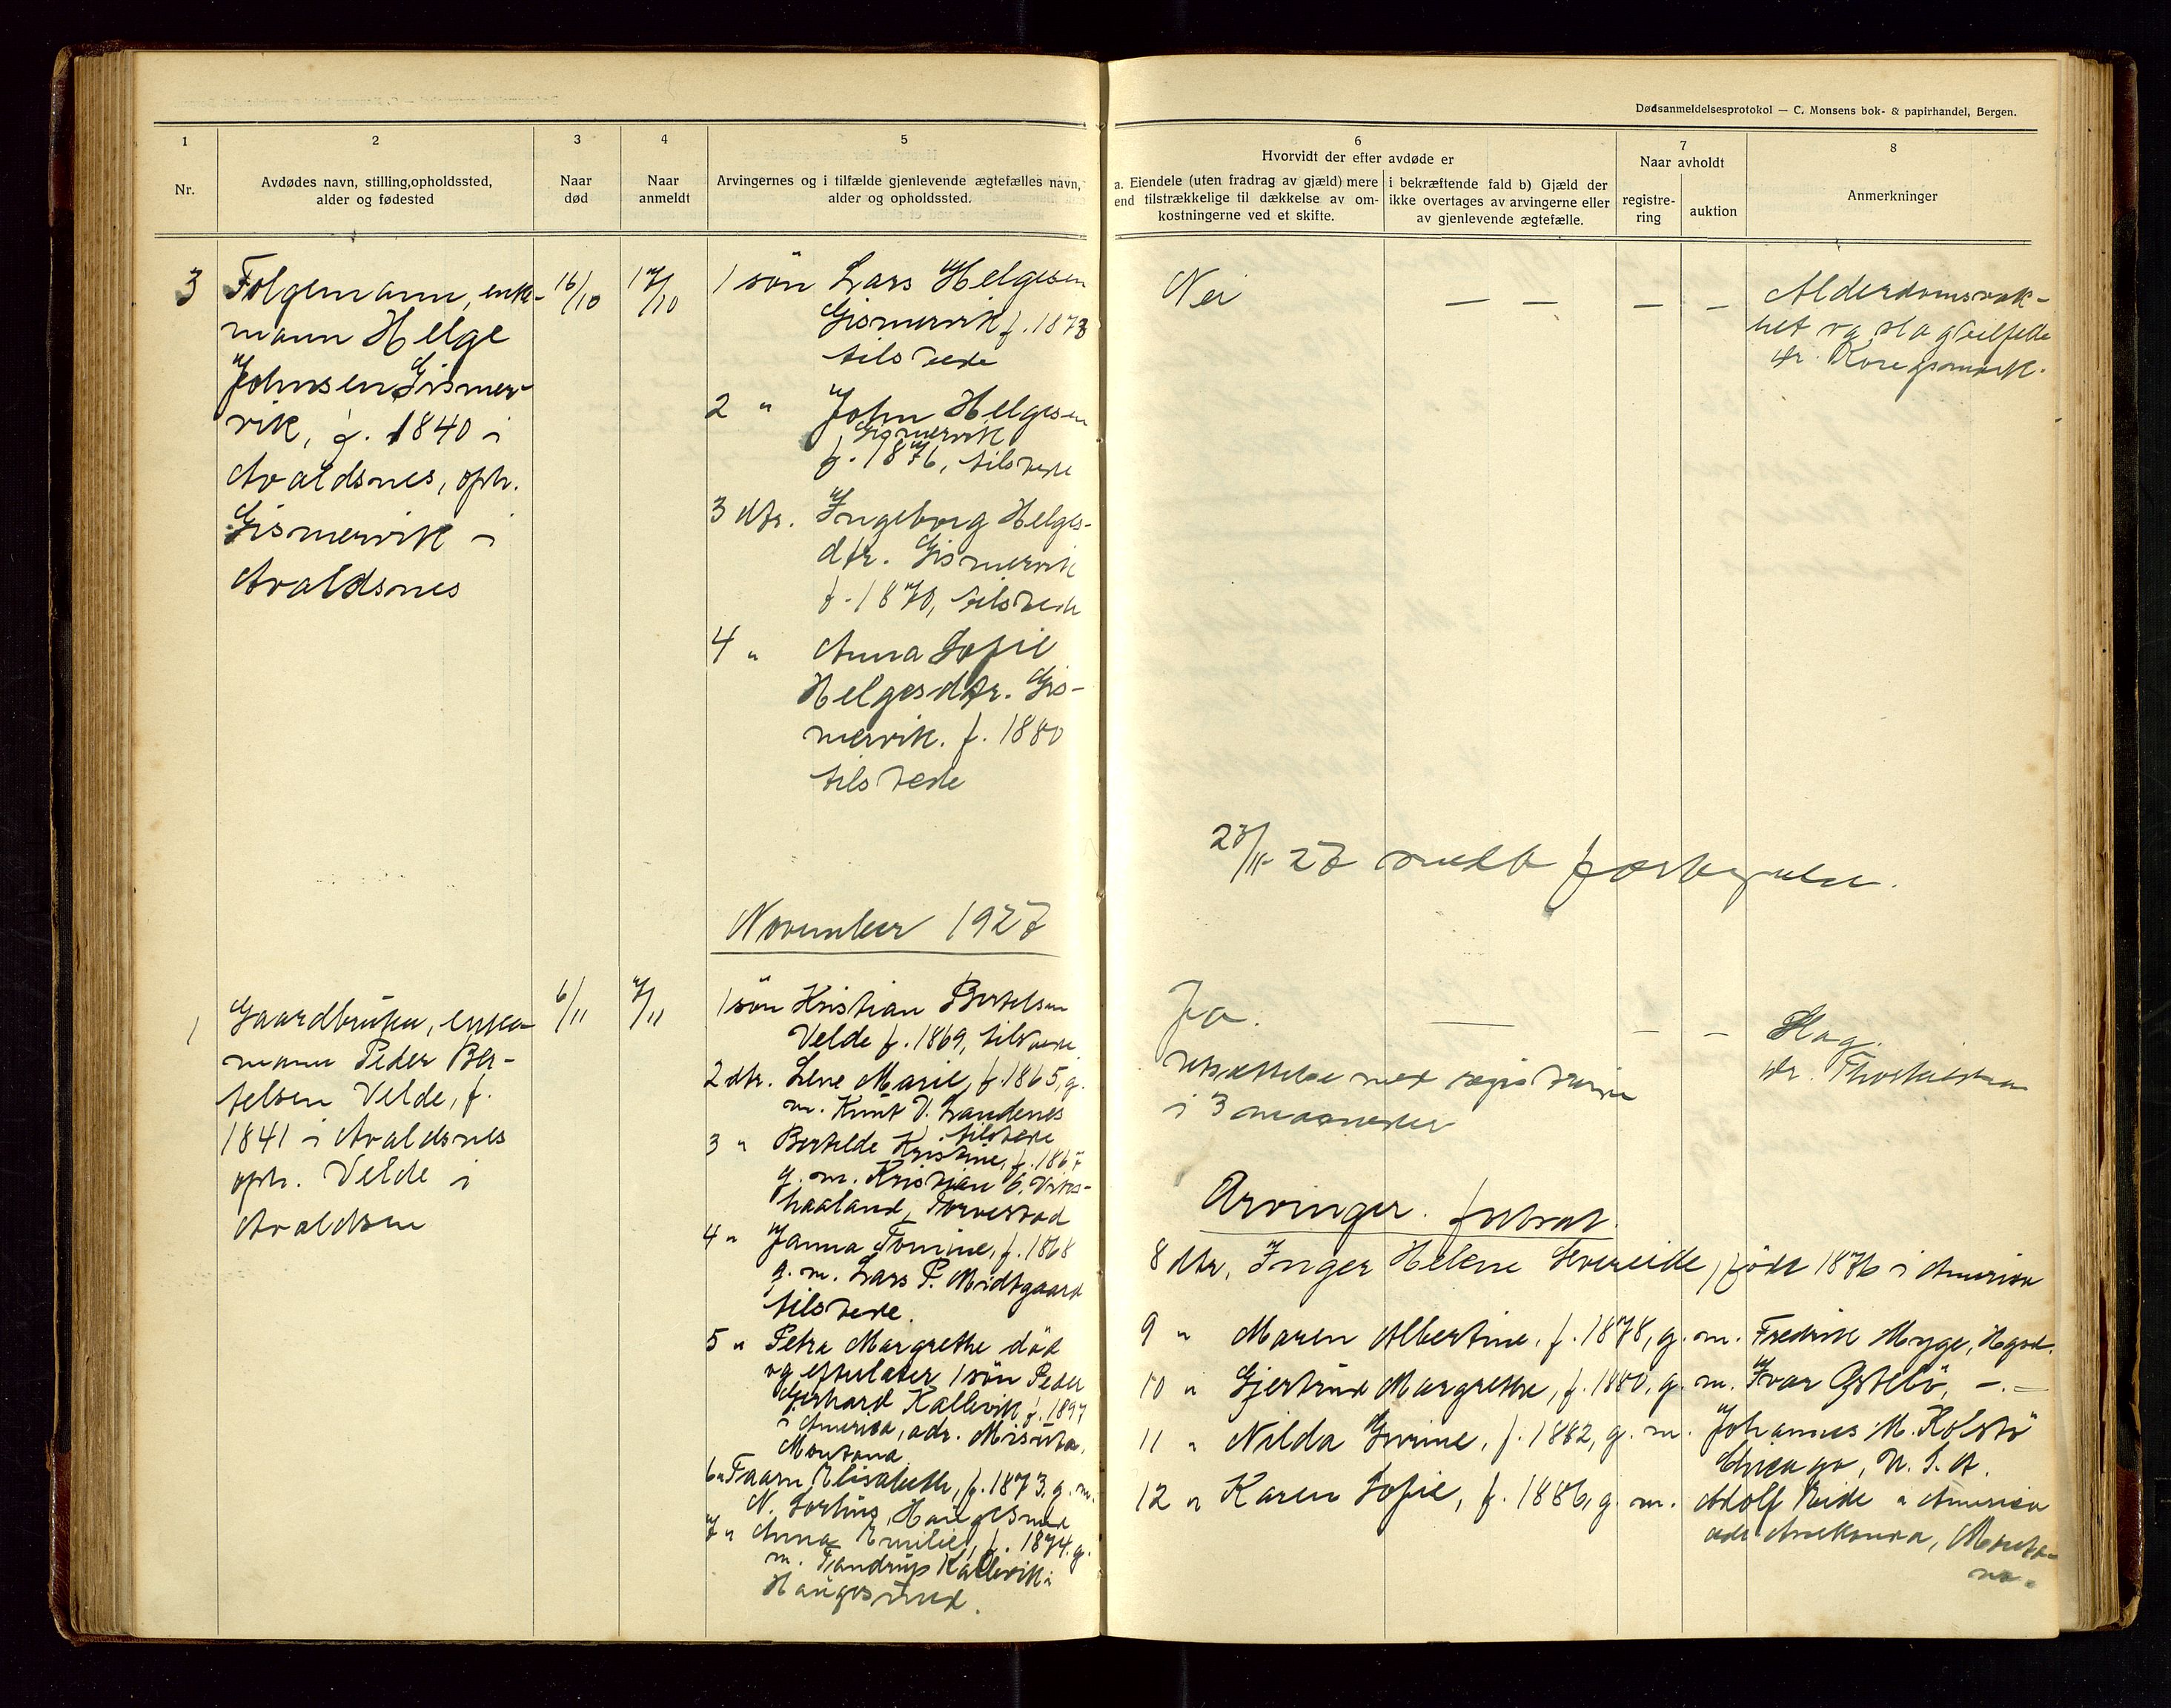 Dødsanmeldelsesprotokol — C. Monsens bok- & papirhandel, Bergen.
1
Nr.
2
Avdødes navn, stilling, opholdssted,
alder og fødested
3
Naar
død
4
Naar
anmeldt
5
Arvingernes og i tilfælde gjenlevende ægtefælles navn,
alder og opholdssted.
6
Hvorvidt der efter avdøde er
a. Eiendele (uten fradrag av gjæld) mere
end tilstrækkelige til dækkelse av om-
kostningerne ved et skifte.
i bekræftende fald b) Gjæld der
ikke overtages av arvingerne eller
av gjenlevende ægtefælle.
7
Naar avholdt
registre-
ring
auktion
8
Anmerkninger
3
Folgemann, enke-
mann Helge
Johnsen Gismer-
vik, f. 1840 i
Avaldsnes, oph.
Gismervik i
Avaldsnes
16/10
17/10
1 søn Lars Helgesen
Gismervik f. 1873
tilstede
2 " John Helgesen
Gismervik
f. 1876, tilstede
3 dtr. Ingeborg Helges-
dtr. Gismervik
f. 1870, tilstede
4 " Anna Sofie
Helgesdtr. Gis-
mervik. f. 1880
tilstede
Nei
— —
—
—
Alderdomsvak-
het og slagtilfelle
dr.
23/11-27
November 1927
1
Gaardbruker, enke-
mann Peder Ber-
telsen Velde, f.
1841 i Avaldsnes
oph. Velde i
Avaldsnes
6/11
7/11
1 søn Kristian Bertelsen
Velde f. 1869, tilstede
2 dtr. Lene Marie, f. 1865, g.
m. Knut V. Sandenes
tilstede
3 " Bertilde Kristine, f. 1867
g. m. Kristian
haaland, Torvestad
4 " Janna Tomine, f. 1868
g. m. Lars P. Midtgaard
tilstede.
5 " Petra Margrethe død
og efterlater 1 søn Peder
Gerhard Kallevik f. 1897
i Amerika, adr.
Montana.
6 " Elisabeth, f. 1873, g. m.
N. Haugesund
7 " Anna Emilie, f. 1874. g.
m. Tandrup Kallevik i
Haugesund.
Ja.
—
—
—
Slag.
dr.
utsættelse med registrering
i 3 maaneder
Arvinger. fortsat.
8 dtr. Inger Helene født 1876 i Amerika
9 " Maren Albertine, f. 1878, g. m. Fredrik Myge, Hgsd.
10 " Gjertrud Margrethe, f. 1880, g. m. Ivar —.—
11 " Nilda f. 1882, g. m. Johannes M. Kolstø
Chicago, U. S. A.
12 " Karen Sofie, f. 1886, g. m. Adolf Amerika
adr. Montana.